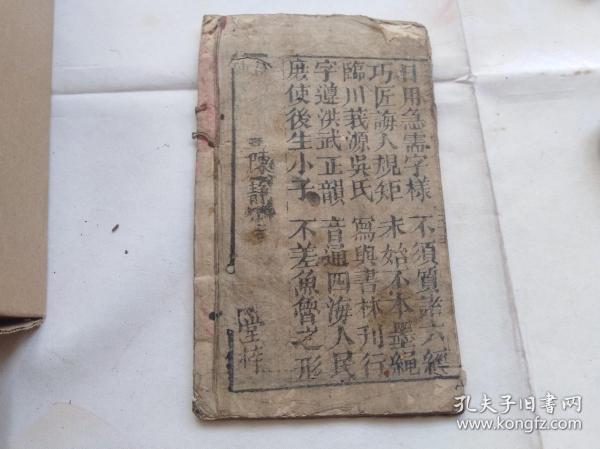 日用急需字樣 不須質諸六經
巧匠誨人規矩 未始不本墨繩
臨川莪源吳氏 寫與書林刊行
字遵洪武正韻 音通四海人民
庶使後生小子 不差魚魯之形
陳靜
堂梓
孔夫子旧书网
www.kongfz.com